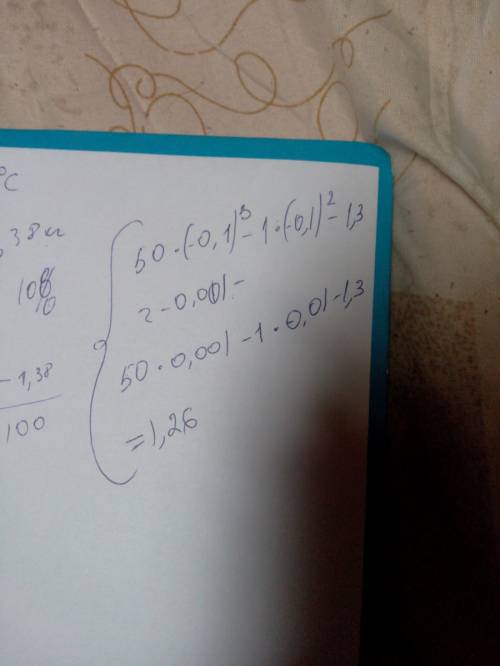 °C
,38 кг
100%
-1,38
100
50·(-0,1)³-1·(-0,1)²-1,3
2-0,001-
50·0,001-1·0,01-1,3
=1,26